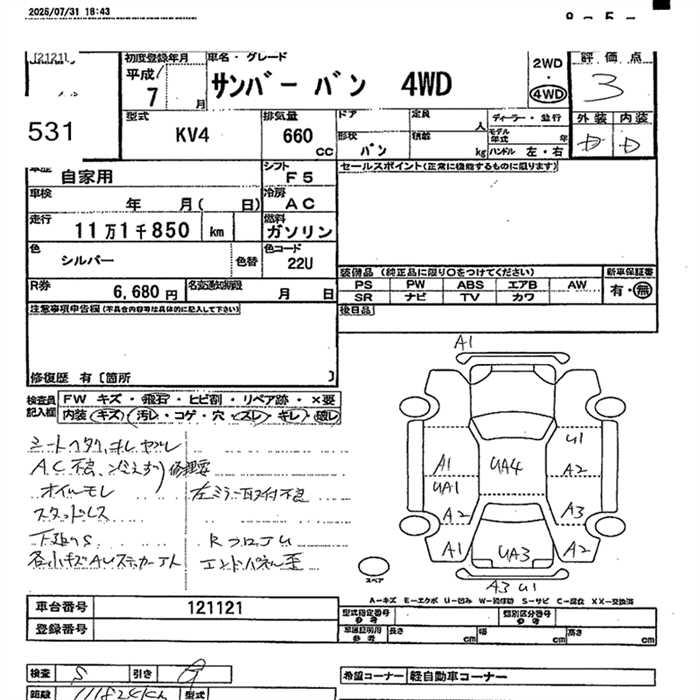 2025/07/31 18:43
初度登録年月
車名・グレード
平成
7 月
サンバー バン 4WD
2WD
・
4WD
評価点
3
531
型式
KV4
排気量
660
cc
ドア
定員
人
形状
バン
積載
kg
ディーラー・並行
モデル年式
年
ハンドル 左・右
外装 内装
D D
自家用
シフト
F5
車検
年 月( 日)
冷房
AC
走行
11万1千850 km
燃料
ガソリン
色
シルバー
色替
色コード
22U
R券
6,680 円
名変通知期限
月 日
セールスポイント(正常に機能するものに限ります)
装備品 (純正品に限り〇をつけてください)
新車保証書
PS PW ABS エアB AW
有・無
SR ナビ TV カワ
後日品
注意事項申告欄(不具合内容等は具体的に記入して下さい)
修復歴 有〔箇所 〕
検査員
記入欄
FW キズ・飛石・ヒビ割・リペア跡・×要
内装 キズ 汚レ・コゲ・穴・スレ・キレ・破レ
シートヘタリ、キレ、ヤブレ
AC不良
修理要
オイルモレ
左ミラー取付不良
スタッドレス
下廻りS
RフロアU
エンドパネル歪
A1
U1
A1
UA1
UA4
A2
A2
A3
A1
UA3
A2
A3 U1
スペア
A-キズ E-エクボ U-凹み W-補修跡 S-サビ C-腐食 XX-交換済
車台番号
121121
登録番号
型式指定番号
参考
類別区分番号
参考
参考
長さ
cm
幅
cm
高さ
cm
検査
S
引き
希望コーナー
軽自動車コーナー
距離
111824km
型式